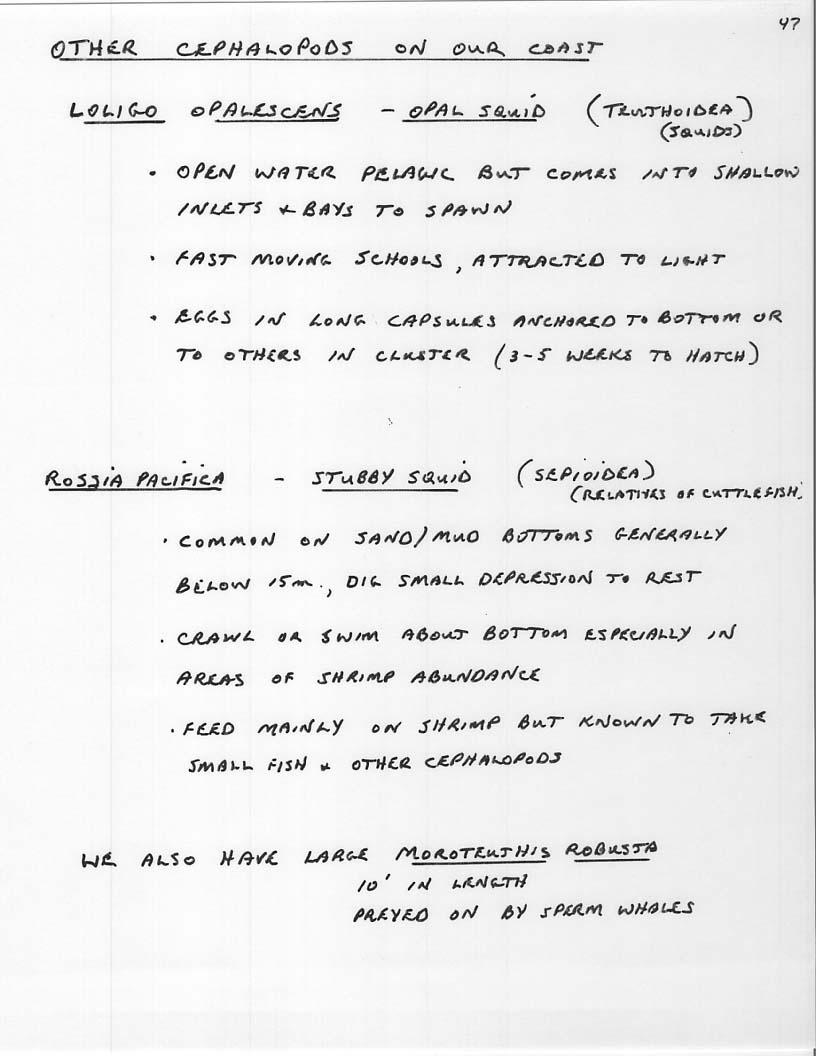 47
OTHER CEPHALOPODS ON OUR COAST
LOLIGO OPALESCENS - OPAL SQUID (TEUTHOIDEA)
(SQUIDS)
• OPEN WATER PELAGIC BUT COMES INTO SHALLOW
INLETS & BAYS TO SPAWN
• FAST MOVING SCHOOLS, ATTRACTED TO LIGHT
• EGGS IN LONG CAPSULES ANCHORED TO BOTTOM OR
TO OTHERS IN CLUSTER (3-5 WEEKS TO HATCH)
ROSSIA PACIFICA - STUBBY SQUID (SEPIOIDEA)
(RELATIVES OF CUTTLEFISH)
• COMMON ON SAND/MUD BOTTOMS GENERALLY
BELOW 15m., DIG SMALL DEPRESSION TO REST
• CRAWL OR SWIM ABOUT BOTTOM ESPECIALLY IN
AREAS OF SHRIMP ABUNDANCE
• FEED MAINLY ON SHRIMP BUT KNOWN TO TAKE
SMALL FISH & OTHER CEPHALOPODS
WE ALSO HAVE LARGE MOROTEUTHIS ROBUSTA
10' IN LENGTH
PREYED ON BY SPERM WHALES